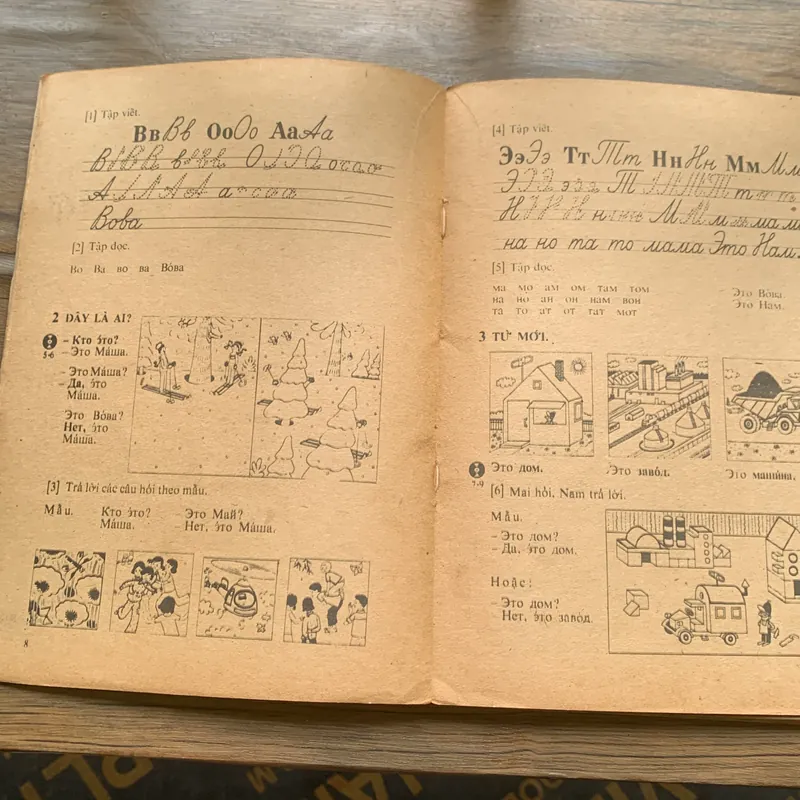 [1] Tập viết.
Вв Вв Оо Оо Аа Аа
Вова
[2] Tập đọc.
Во Ва во ва Во́ва
2 ĐÂY LÀ AI?
– Кто э́то?
5-6
– Это Ма́ша.
– Это Ма́ша?
– Да, э́то
Ма́ша.
Это Во́ва?
Нет, э́то
Ма́ша.
[3] Trả lời các câu hỏi theo mẫu.
Mẫu. Кто э́то? Это Май?
Ма́ша. – Нет, э́то Ма́ша.
8
[4] Tập viết.
Ээ Ээ Тт Тт Нн Нн Мм Мм
на но та то мама Это Нам.
[5] Tập đọc.
ма мо ам ом там том
на но ан он нам вон
та то ат от тат мот
– Это Во́ва.
– Это Нам.
3 TỪ MỚI.
7-9
Это дом.
Это заво́д.
Это маши́на.
[6] Mai hỏi, Nam trả lời.
Mẫu.
– Это дом?
– Да, э́то дом.
Hoặc:
– Это дом?
Нет, э́то заво́д.